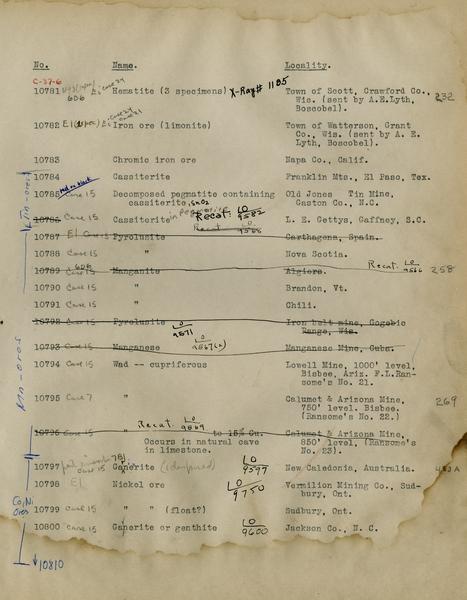 No. Name. Locality.
C-37-6
10781 Hematite (3 specimens) X-Ray# 1185 Town of Scott, Crawford Co., 232
606 Wis. (sent by A.E.Lyth,
Boscobel).
10782 E1 Iron ore (limonite) Town of Watterson, Grant
Co., Wis. (sent by A. E.
Lyth, Boscobel).
10783 Chromic iron ore Napa Co., Calif.
10784 Cassiterite Franklin Mts., El Paso, Tex.
10785 Case 15 Decomposed pegmatite containing Old Jones Tin Mine,
cassiterite, SnO2 Gaston Co., N.C.
10786 Case 15 Cassiterite in Pegmatite Recat. LO 9582 L. E. Gettys, Gaffney, S.C.
Recat. LO
10787 E1 Pyrolusite Carthagena, Spain.
10788 Case 15 " Nova Scotia.
606 Recat. LO 9566
10789 Case 15 Manganite Algiers. 258
10790 Case 15 " Brandon, Vt.
10791 Case 15 " Chili.
10792 Case 15 Pyrolusite LO 9571 Iron belt mine, Gogebic
Range, Wis.
10793 Case 15 Manganese LO Manganese Mine, Cuba.
10794 Case 15 Wad -- cupriferous Lowell Mine, 1000' level,
Bisbee, Ariz. F.L.Ran-
some's No. 21.
10795 Case 7 " Calumet & Arizona Mine, 269
750' level. Bisbee.
(Ransome's No. 22.)
Recat. LO 9569
10796 Case 15 " to 15% Cu. Calumet & Arizona Mine,
Occurs in natural cave 850' level, (Ransome's
in limestone. No. 23).
781
10797 Case 15 Garnerite LO 9597 New Caledonia, Australia.
10798 E1 Nickel ore LO 9750 Vermilion Mining Co., Sud-
bury, Ont.
10799 Case 15 " " (float?) Sudbury, Ont.
10800 Case 15 Garnerite or genthite LO 9600 Jackson Co., N. C.
Tin-ores
Mn-ores
Co, Ni
Ores
10810